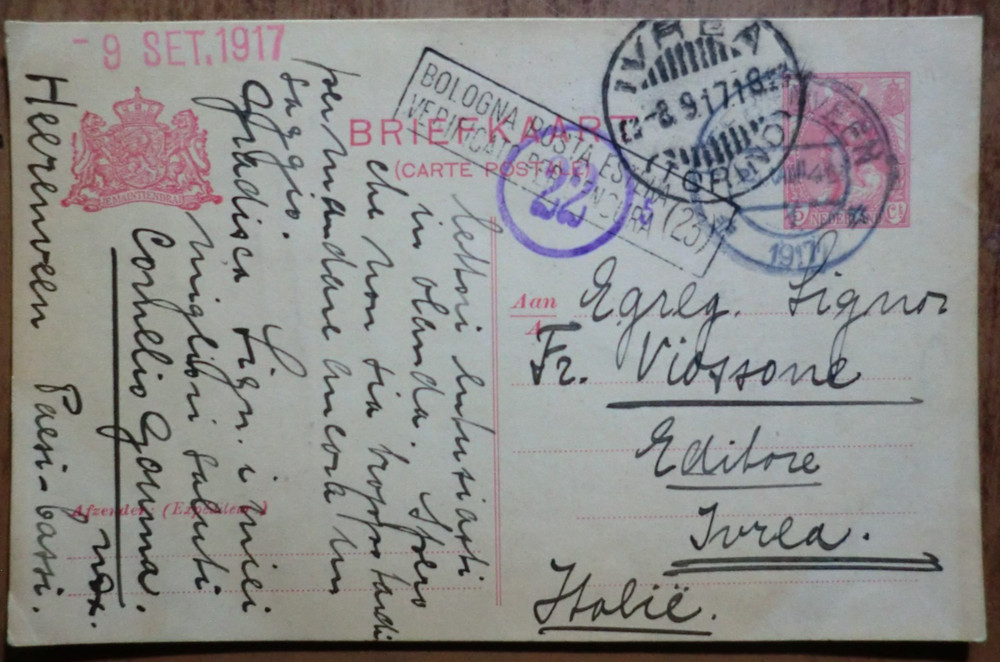 - 9 SET. 1917
BOLOGNA POSTA ESTERA (23)
VERIFICATO PER CENSURA
BRIEFKAART
(CARTE POSTALE)
22
IVREA
-8.9.17 18
TORINO
VEEN
1917
5 NEDERLAND Ct
JE MAINTIENDRAI
Aan
A
Egreg. Signor
Fr. Viossone
Editore
Ivrea.
Italië.
Afzender: (Expéditeur)
lettori entusiasti
in olanda. Spero
che non sia troppo tardi
per mandare ancora un
saggio.
Gradisca Sign. i miei
migliori saluti
Cornelio Gauma.
Heerenveen Paesi-bassi.